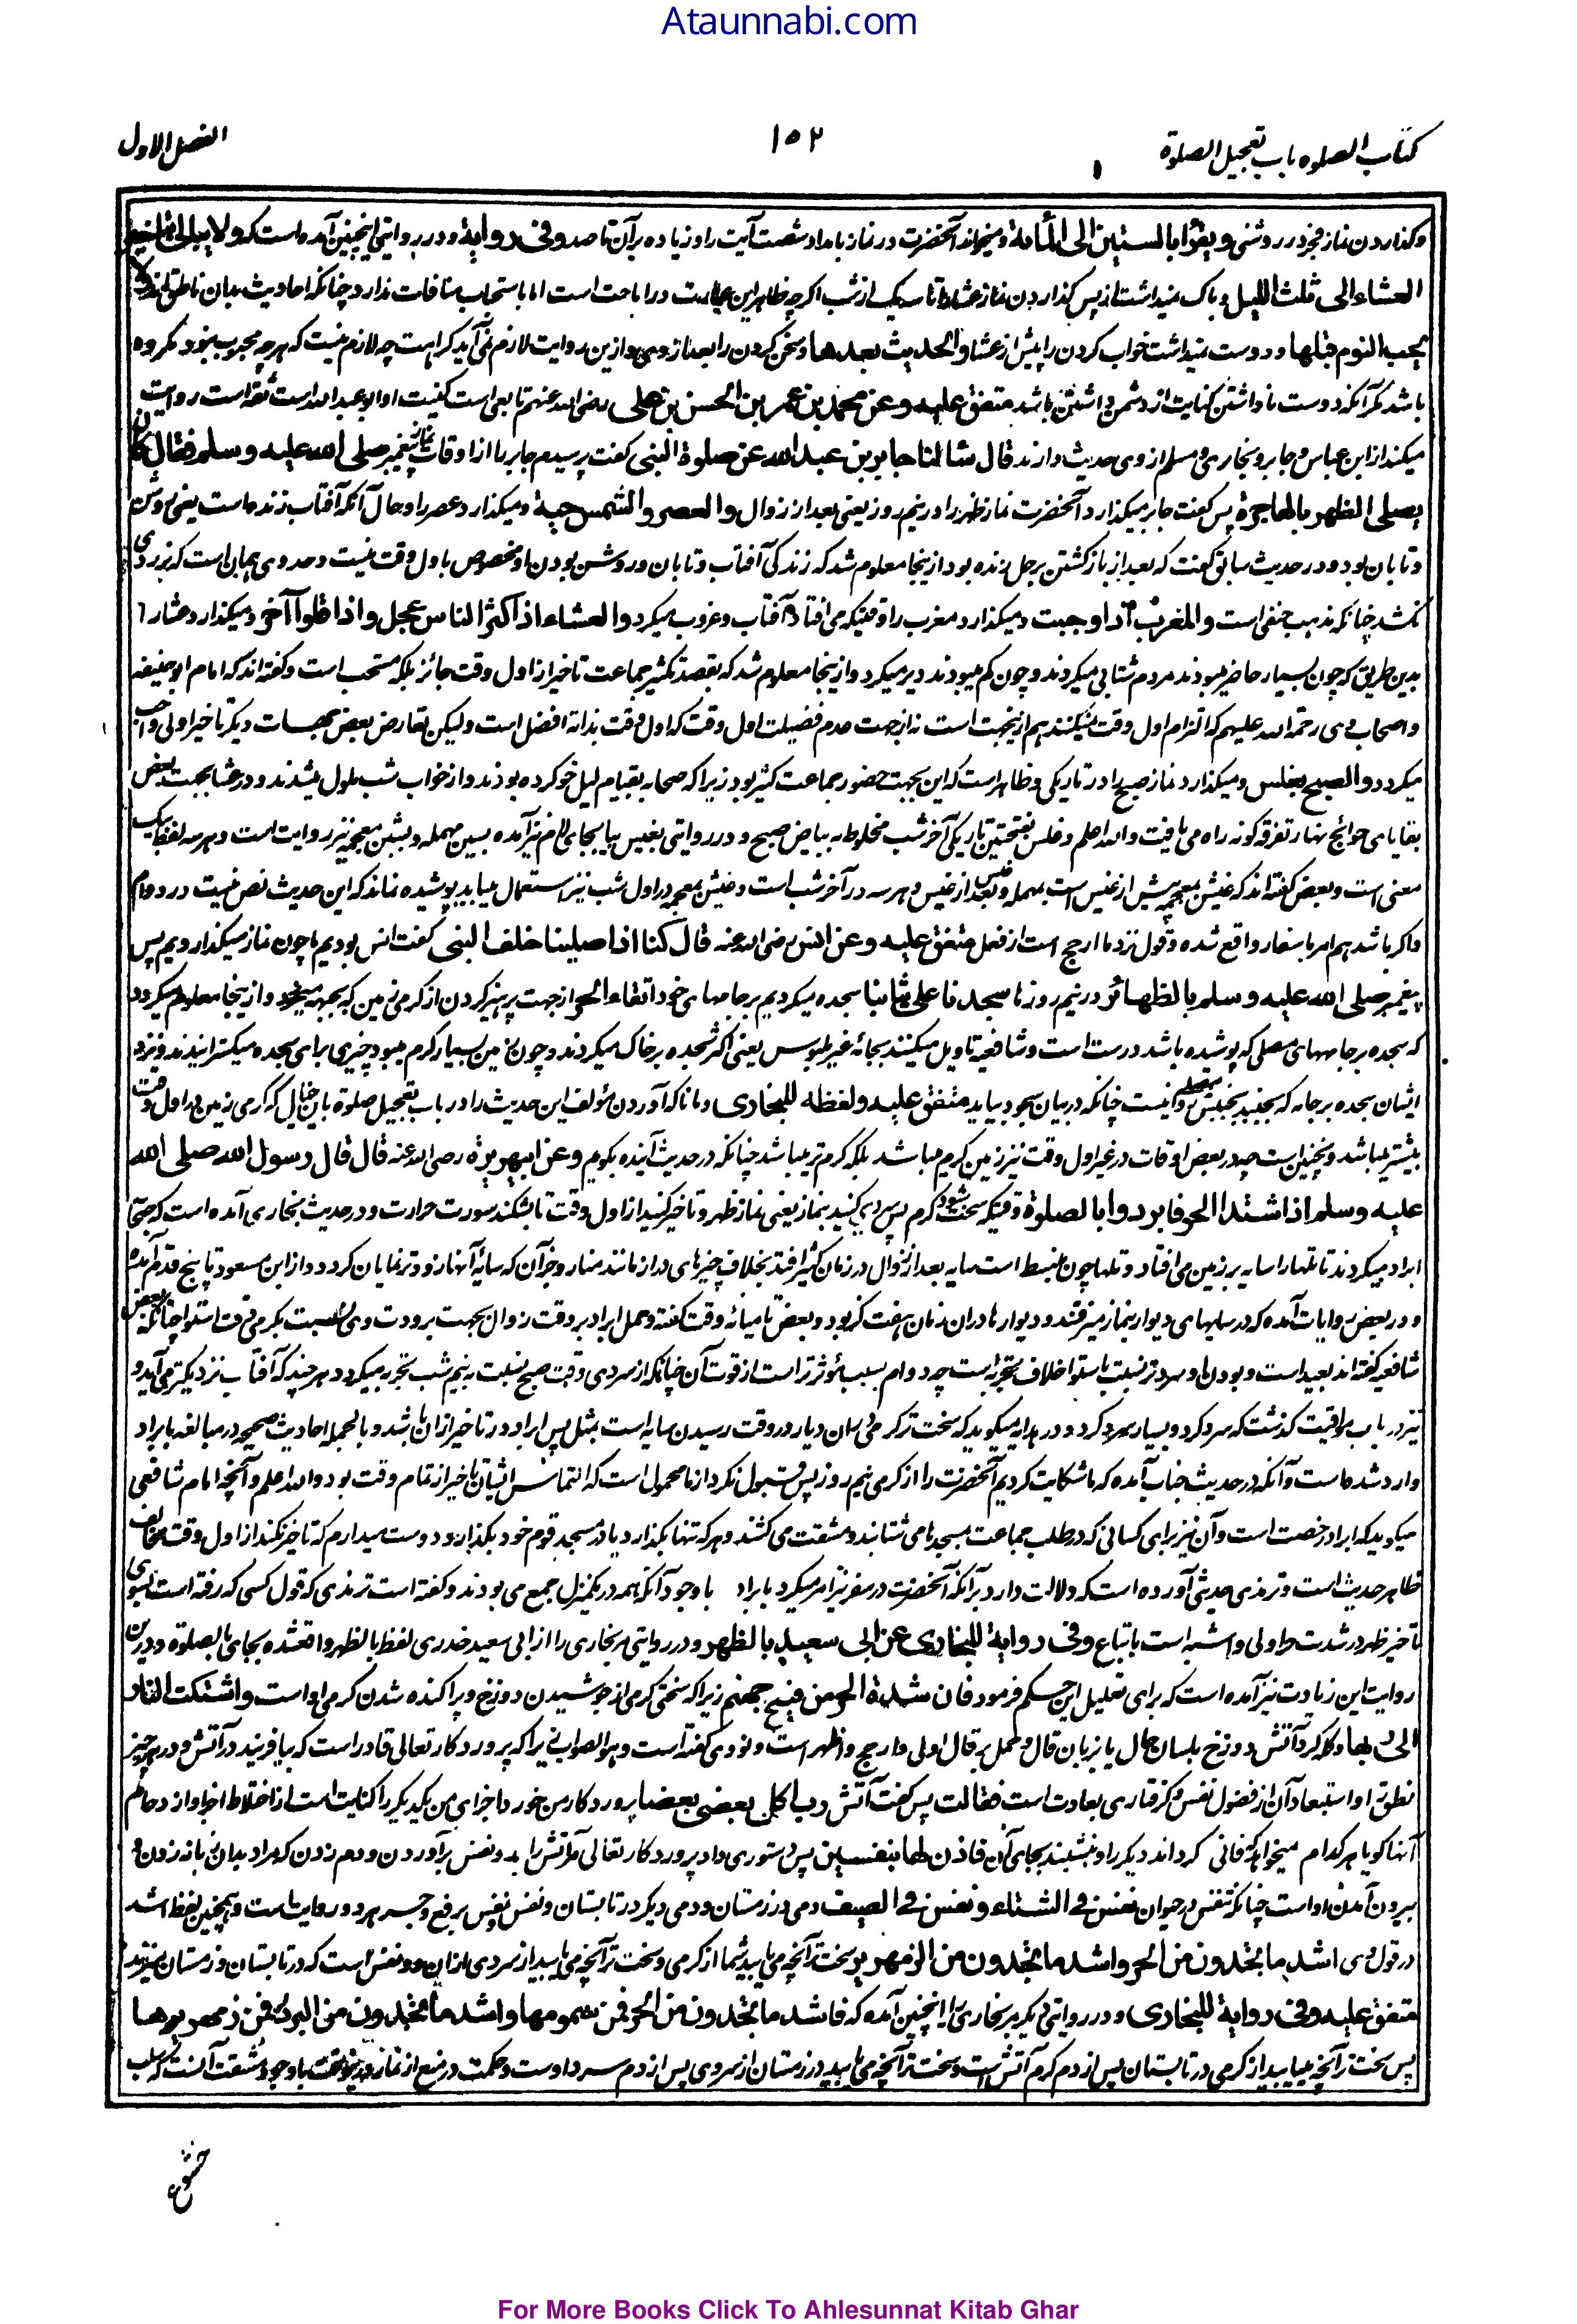 Ataunnabi.com
کتاب الصلوه باب تعجیل الصلوة
۱۵۲
الفصل الاول
وگذاردن نماز فجر در روشنی ویقرأ بالستین الی المأمة ومیخواند آنحضرت در نماز بامداد شصت آیت را وزیاده بر آن تا صد وفی روایة ودر روایتی اینچنین آمده است که ولا یبالی بتاخیر
العشاء الی ثلث اللیل وباک نمیداشت از پس گذاردن نماز عشا را تا سه یک از شب اگرچه ظاهر این عبارت در اباحت است اما با استحباب منافات ندارد چنانکه احادیث بدان ناطق اند ولا
یحب النوم قبلها ودوست نمیداشت خواب کردن را پیش از عشا والحدیث بعدها وسخن کردن را بعد از وی وازین روایت لازم نمی آید کراهت چه لازم نیست که هرچه محبوب نبود مکروه
باشد مگر آنکه دوست نا داشتن کنایت از دشمن داشتن باشد متفق علیه وعن محمد بن عمر بن الحسن بن علی رضی الله عنهم تابعی است کنیت او ابو عبدالله است ثقه است روایت
میکند از ابن عباس وجابر وبخاری ومسلم از وی حدیث دارند قال سألنا جابر بن عبد الله عن صلوة النبی گفت پرسیدم جابر را از اوقات نماز پیغمبر صلی الله علیه وسلم فقال کان
یصلی الظهر بالهاجرة پس گفت جابر میگذارد آنحضرت نماز ظهر را در نیم روز یعنی بعد از زوال والعصر والشمس حیة ومیگذارد عصر را وحال آنکه آفتاب زنده است یعنی روشن
وتابان بود ودر حدیث سابق گفت که بعد از بازگشتن برجل زنده بود از ینجا معلوم شد که زندگی آفتاب وتابان وروشن بودن او مخصوص باول وقت نیست وحد وی همان است که زردی
نکشد چنانکه مذهب حنفی است والمغرب اذا وجبت ومیگذارد مغرب را وقتیکه می افتاد آفتاب وغروب میکرد والعشاء اذا کثر الناس عجل واذا قلوا أخر ومیگذارد عشا را
بدین طریق که چون بسیار حاضر میبودند مردم شتابی میکردند وچون کم میبودند دیر میکرد واز ینجا معلوم شد که بقصد تکثیر جماعت تاخیر از اول وقت جائز بلکه مستحب است وگفته اند که امام ابو حنیفه
واصحاب وی رحمة الله علیهم که التزام اول وقت نمیکنند هم ازینجهت است نه از جهت عدم فضیلت اول وقت که اول وقت بذاته افضل است ولیکن بعارض بعض جهات دیگر تاخیر اولی واحب
میگردد والصبح بغلس ومیگذارد نماز صبح را در تاریکی وظاهر است که این بجهت حضور جماعت کثیر بود زیرا که صحابه بقیام لیل خو کرده بودند واز خواب شب ملول نمیشدند ودر عشا بجهت بعض
بقایای حوائج نهار تفرقه گونه راه می یافت والله اعلم وغلس بفتحتین تاریکی آخر شب مخلوط به بیاض صبح ودر روایتی بغبس ببا بجای لام نیز آمده بسین مهمله وبشین معجمه نیز روایت است وهر سه لفظ بیک
معنی است وبعض گفته اند که غبش بمعجمه پیش از غبس است بمهمله وغلس بعد از غبس وهر سه در آخر شب است وغبش بمعجمه در اول شب نیز استعمال میابد پوشیده نماند که این حدیث نص نیست در دوام
واگر باشد هم امر باسفار واقع شده وقول نزد ما ارجح است از فعل متفق علیه وعن انس رضی الله عنه قال کنا اذا صلینا خلف النبی گفت انس بودیم ما چون نماز میگذاردیم پس
پیغمبر صلی الله علیه وسلم بالظهائر در نیم روزها سجدنا علی ثیابنا سجده میکردیم بر جامهای خود اتقاء الحر از جهت پرهیز کردن از گرمی زمین که بجبهه میرسید واز ینجا معلوم میگردد
که سجده بر جامهای مصلی که پوشیده باشد درست است وشافعیه تاویل میکنند بجامه غیر ملبوس یعنی اکثر سجده بر خاک میکردند وچون زمین بسیار گرم میبود چیزی برای سجده میگسترانیدند ونزد
ایشان سجده بر جامه که بجنبد بجنبیدن مصلی روا نیست چنانکه در بیان سجود بیاید متفق علیه ولفظه للبخاری ومانا که آوردن مؤلف این حدیث را در باب تعجیل صلوة باین خیال که گرمی زمین در اول وقت
بیشتر میباشد ونچنین است چه در بعض اوقات در غیر اول وقت نیز زمین گرم میباشد بلکه گرم تر میباشد چنانکه در حدیث آینده بگویم وعن ابی هریرة رضی الله عنه قال قال رسول الله صلی الله
علیه وسلم اذا اشتد الحر فابردوا بالصلوة وقتیکه سخت شود گرم پس سردی کنید بنماز یعنی نماز ظهر وتاخیر کنید از اول وقت تا بشکند سورت حرارت ودر حدیث بخاری آمده است که صحابه
ابراد میکردند تا تلها را سایه بر زمین می افتاد وتلها چون منبسط است سایه بعد از زوال در زمان کثیر افتد بخلاف چیزهای دراز مانند منار وجز آن که سایه آنها زودتر نمایان گردد واز ابن مسعود تا پنج قدم آمده
ودر بعض روایات آمده که در سایهای دیوار بنماز میرفتند ودیوارها دران زمان هفت گز بود وبعض تا میانه وقت گفته وحمل ابراد بر وقت زوال بجهت برودت وی نسبت بگرمی وقت استوا چنانکه بعض
شافعیه گفته اند بعید است وبودن او سردتر نسبت باستوا خلاف تجربه است چه دوام سبب مؤثرتر است از قوت آن چنانکه از سردی وقت صبح نسبت به نیم شب تجربه میگردد هرچند که آفتاب نزدیکتر می آید و
نیز در باب مواقیت گذشت که سرد کرد وبسیار سرد کرد ودر هدایه میگوید که سخت تر گرمی در ان دیار در وقت رسیدن سایه است بمثل پس ابراد در تاخیر ازان باشد وبالجمله احادیث صحیحه در مبالغه بابراد
وارد شده است وآنکه در حدیث خباب آمده که ما شکایت کردیم آنحضرت را از گرمی نیم روز پس قبول نکرد از ما محمول است که التماس ایشان تاخیر از تمام وقت بود والله اعلم وآنچه امام شافعی
میگوید که ابراد رخصت است وآن نیز برای کسانی که در طلب جماعت بمسجدها می شتابند ومشقت می کشند وهر که تنها بگذارد یا در مسجد قوم خود بگذارد دوست میدارم که تاخیر نکند از اول وقت مخالف
ظاهر حدیث است وترمذی حدیثی آورده است که دلالت دارد بر آنکه آنحضرت در سفر نیز امر میکرد بابراد با وجود آنکه همه در یک منزل جمع می بودند وگفته است ترمذی که قول کسی که رفته است بسوی
تاخیر ظهر در شدت حر اولی واشبه است باتباع وفی روایة للبخاری عن ابی سعید بالظهر ودر روایتی مر بخاری را از ابی سعید خدری لفظ بالظهر واقع شده بجای بالصلوة ودرین
روایت این زیادت نیز آمده است که برای تعلیل این حکم فرمود فان شدة الحر من فیح جهنم زیرا که سختی گرمی از جوشیدن دوزخ وپراگنده شدن گرمی او است واشتکت النار
الی ربها وگله کرد آتش دوزخ بلسان حال یا بزبان قال وحمل بر قال اولی وارجح واظهر است ونووی گفته است وهو الصواب زیرا که پروردگار تعالی قادر است که بیافریند در آتش ودر هر چیز
نطق را واستبعاد آن از فضول نفس وگرفتاری بعادت است فقالت پس گفت آتش رب اکل بعضی بعضا پروردگار من خورد اجزای من یکدیگر را کنایت است از اختلاط اجزا وازدحام
آنها گویا هر کدام میخواهد که فانی گرداند دیگر را وبنشیند بجای آن فاذن لها بنفسین پس دستوری داد پروردگار تعالی مر آتش را بدو نفس برآوردن ودم زدن که مراد بدان زبانه زدن و
بیرون آمدن او است چنانکه تنفس در حیوان نفس فی الشتاء ونفس فی الصیف دمی در زمستان ودمی دیگر در تابستان ونفس نفس برفع وجر هر دو روایت است وهمچنین لفظ اشد
در قول وی اشد ما تجدون من الحر واشد ما تجدون من الزمهریر سخت تر آنچه می یابید شما از گرمی وسخت تر آنچه می یابید از سردی ازان دو نفس است که در تابستان وزمستان میزند
متفق علیه وفی روایة للبخاری ودر روایتی دیگر مر بخاری را اینچنین آمده که فاشد ما تجدون من الحر فمن سمومها واشد ما تجدون من البرد فمن زمهریرها
پس سخت تر آنچه میابید از گرمی در تابستان پس از دم گرم آتش است وسخت تر آنچه می یابید در زمستان از سردی پس از دم سرد اوست وحکمت در منع از نماز درینوقت با وجود مشقت آنست که سلب
خشوع
For More Books Click To Ahlesunnat Kitab Ghar